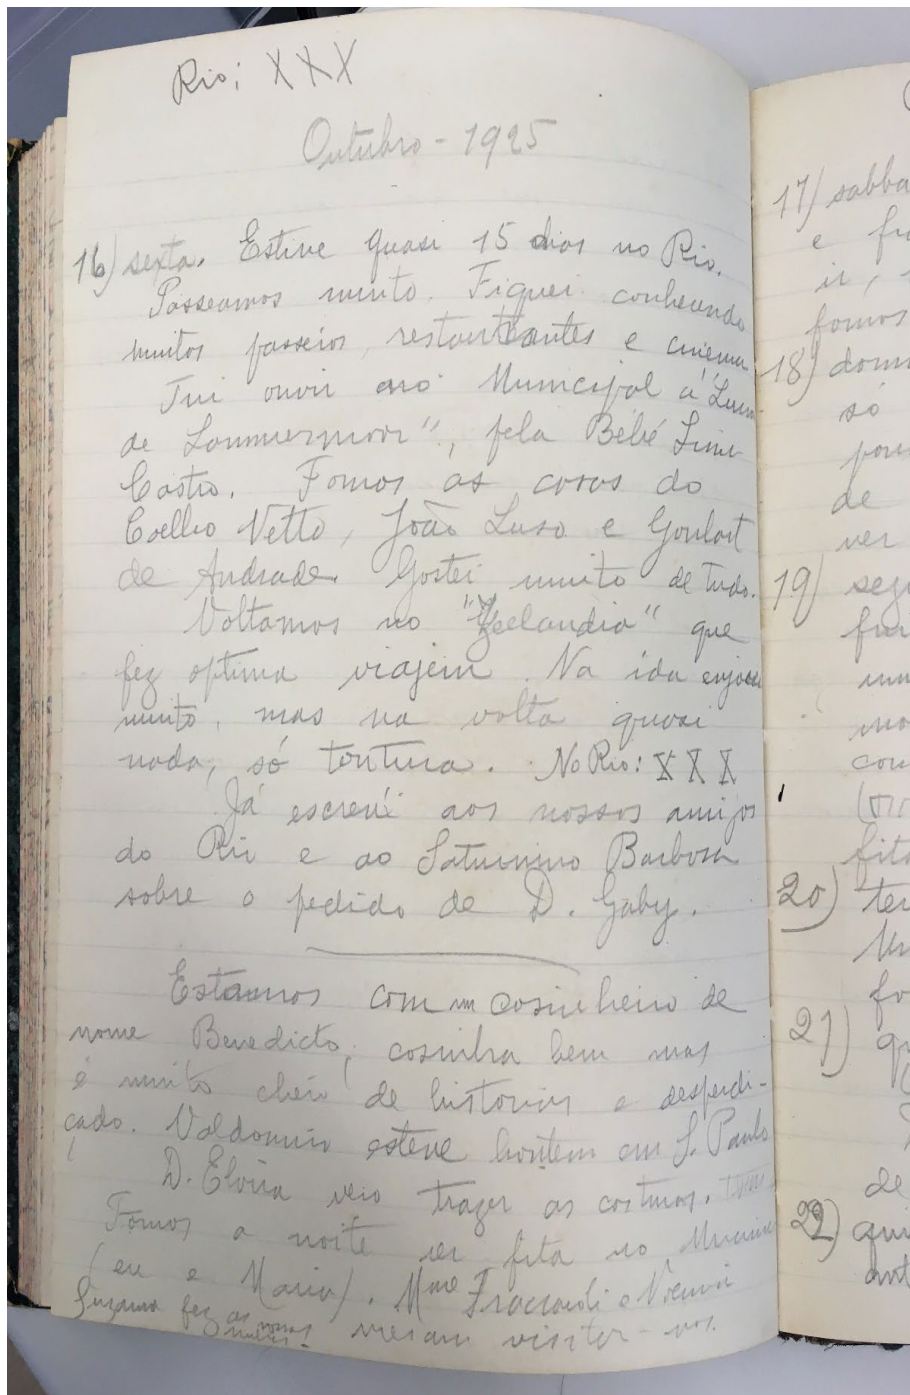 Rio: XXX
Outubro - 1925
16) sexta. Estive quasi 15 dias no Rio.
Passeamos muito. Fiquei conhecendo
muitos passeios, restaurantes e cinema
Fui ouvir no Municipal a "Lucia
de Lammermoor", pela Bébé Lima
Castro. Fomos as casas do
Coelho Netto, João Luso e Goulart
de Andrade. Gostei muito de tudo.
Voltamos no "Zeelandia" que
fez optima viajem. Na ida enjoei
muito, mas na volta quasi
nada, só tontura. No Rio: X X X
Já escreví aos nossos amigos
do Rio e ao Saturnino Barbosa
sobre o pedido de D. Gaby.
Estamos com um cosinheiro de
nome Benedicto, cosinha bem mas
é muito cheio de historias e desperdi-
çado. Valdomiro esteve hontem em S. Paulo
D. Elvira veio trazer as costuras.
Fomos a noite ver fita no
(eu e Maria). Mme e Noemia
Suzana fez as nossas vieram visitar-nos.
unhas.
17) sabba
e
ir,
fomos
18) dom
só
de
ver
19) seg
fita
20) ter
21)
de
22) qui
ant